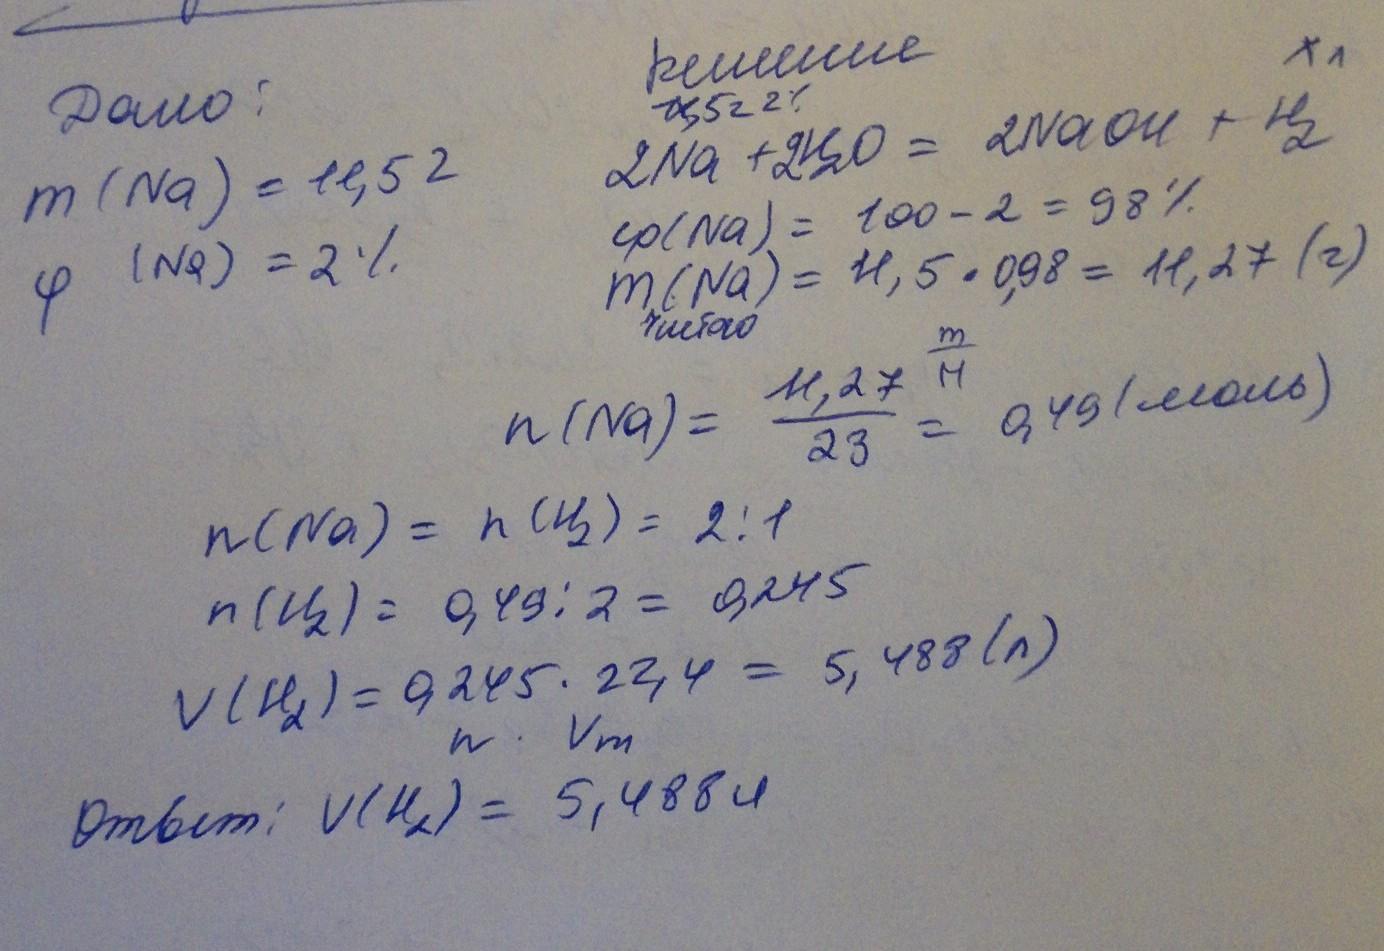 Дано:
m(Na) = 11,5 г
φ (Na) = 2%
Решение
х л
11,5г 2%
2Na + 2H₂O = 2NaOH + H₂
φ(Na) = 100 - 2 = 98%
m(Na) = 11,5 · 0,98 = 11,27 (г)
чистого
m/M
n(Na) = 11,27/23 = 0,49 (моль)
n(Na) = n(H₂) = 2:1
n(H₂) = 0,49 : 2 = 0,245
V(H₂) = 0,245 · 22,4 = 5,488 (л)
n · Vm
Ответ: V(H₂) = 5,488 л